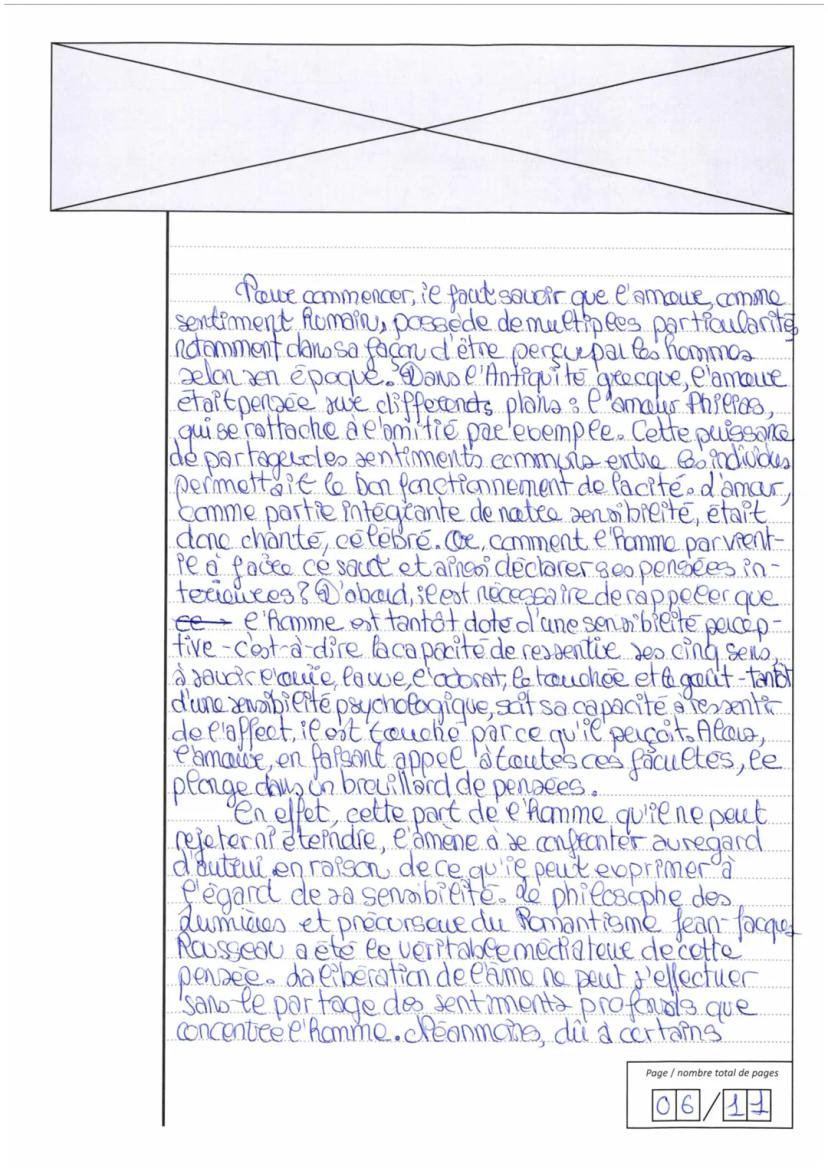 Pour commencer, il faut savoir que l'amour, comme
sentiment humain, possède de multiples particularités
notamment dans sa façon d'être perçu par les hommes
selon son époque. Dans l'Antiquité grecque, l'amour
était pensée sur differents plans : l'amour Philias,
qui se rattache à l'amitié par exemple. Cette puissance
de partager des sentiments communs entre les individus
permettait le bon fonctionnement de la cité. L'amour,
comme partie intégrante de notre sensibilité, était
donc chanté, célébré. Or, comment l'Homme parvient-
il à faire ce saut et ainsi déclarer ses pensées in-
terieures ? D'abord, il est nécessaire de rappeler que
ce l'Homme est tantôt doté d'une sensibilité percep-
tive - c'est-à-dire la capacité de ressentir ses cinq sens,
à savoir l'ouïe, la vue, l'odorat, le touchée et le goût - tantôt
d'une sensibilité psychologique, soit sa capacité à ressentir
de l'affect, il est touché par ce qu'il perçoit. Alors,
l'amour, en faisant appel à toutes ces facultés, le
plonge dans un brouillard de pensées.
En effet, cette part de l'Homme qu'il ne peut
rejeter ni éteindre, l'amène à se confronter au regard
d'autrui en raison de ce qu'il peut exprimer à
l'égard de sa sensibilité. Le philosophe des
Lumières et précurseur du Romantisme Jean-Jacques
Rousseau a été le véritable médiateur de cette
pensée. La libération de l'âme ne peut s'effectuer
sans le partage des sentiments profonds que
concentre l'homme. Néanmoins, dû à certains
Page / nombre total de pages
06 / 11